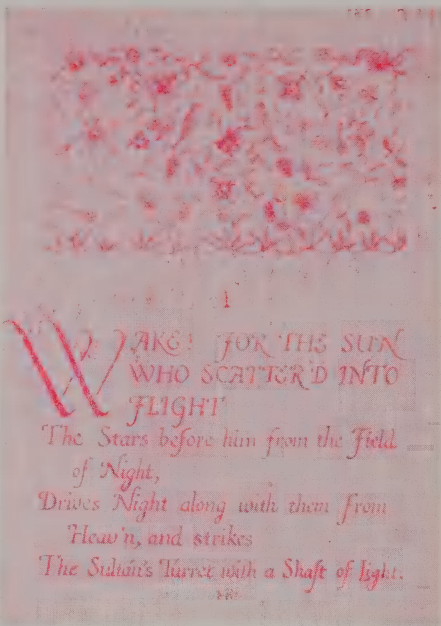 1
WAKE! FOR THE SUN
WHO SCATTER'D INTO
FLIGHT
The Stars before him from the Field
of Night,
Drives Night along with them from
Heav'n, and strikes
The Sultán's Turret with a Shaft of Light.